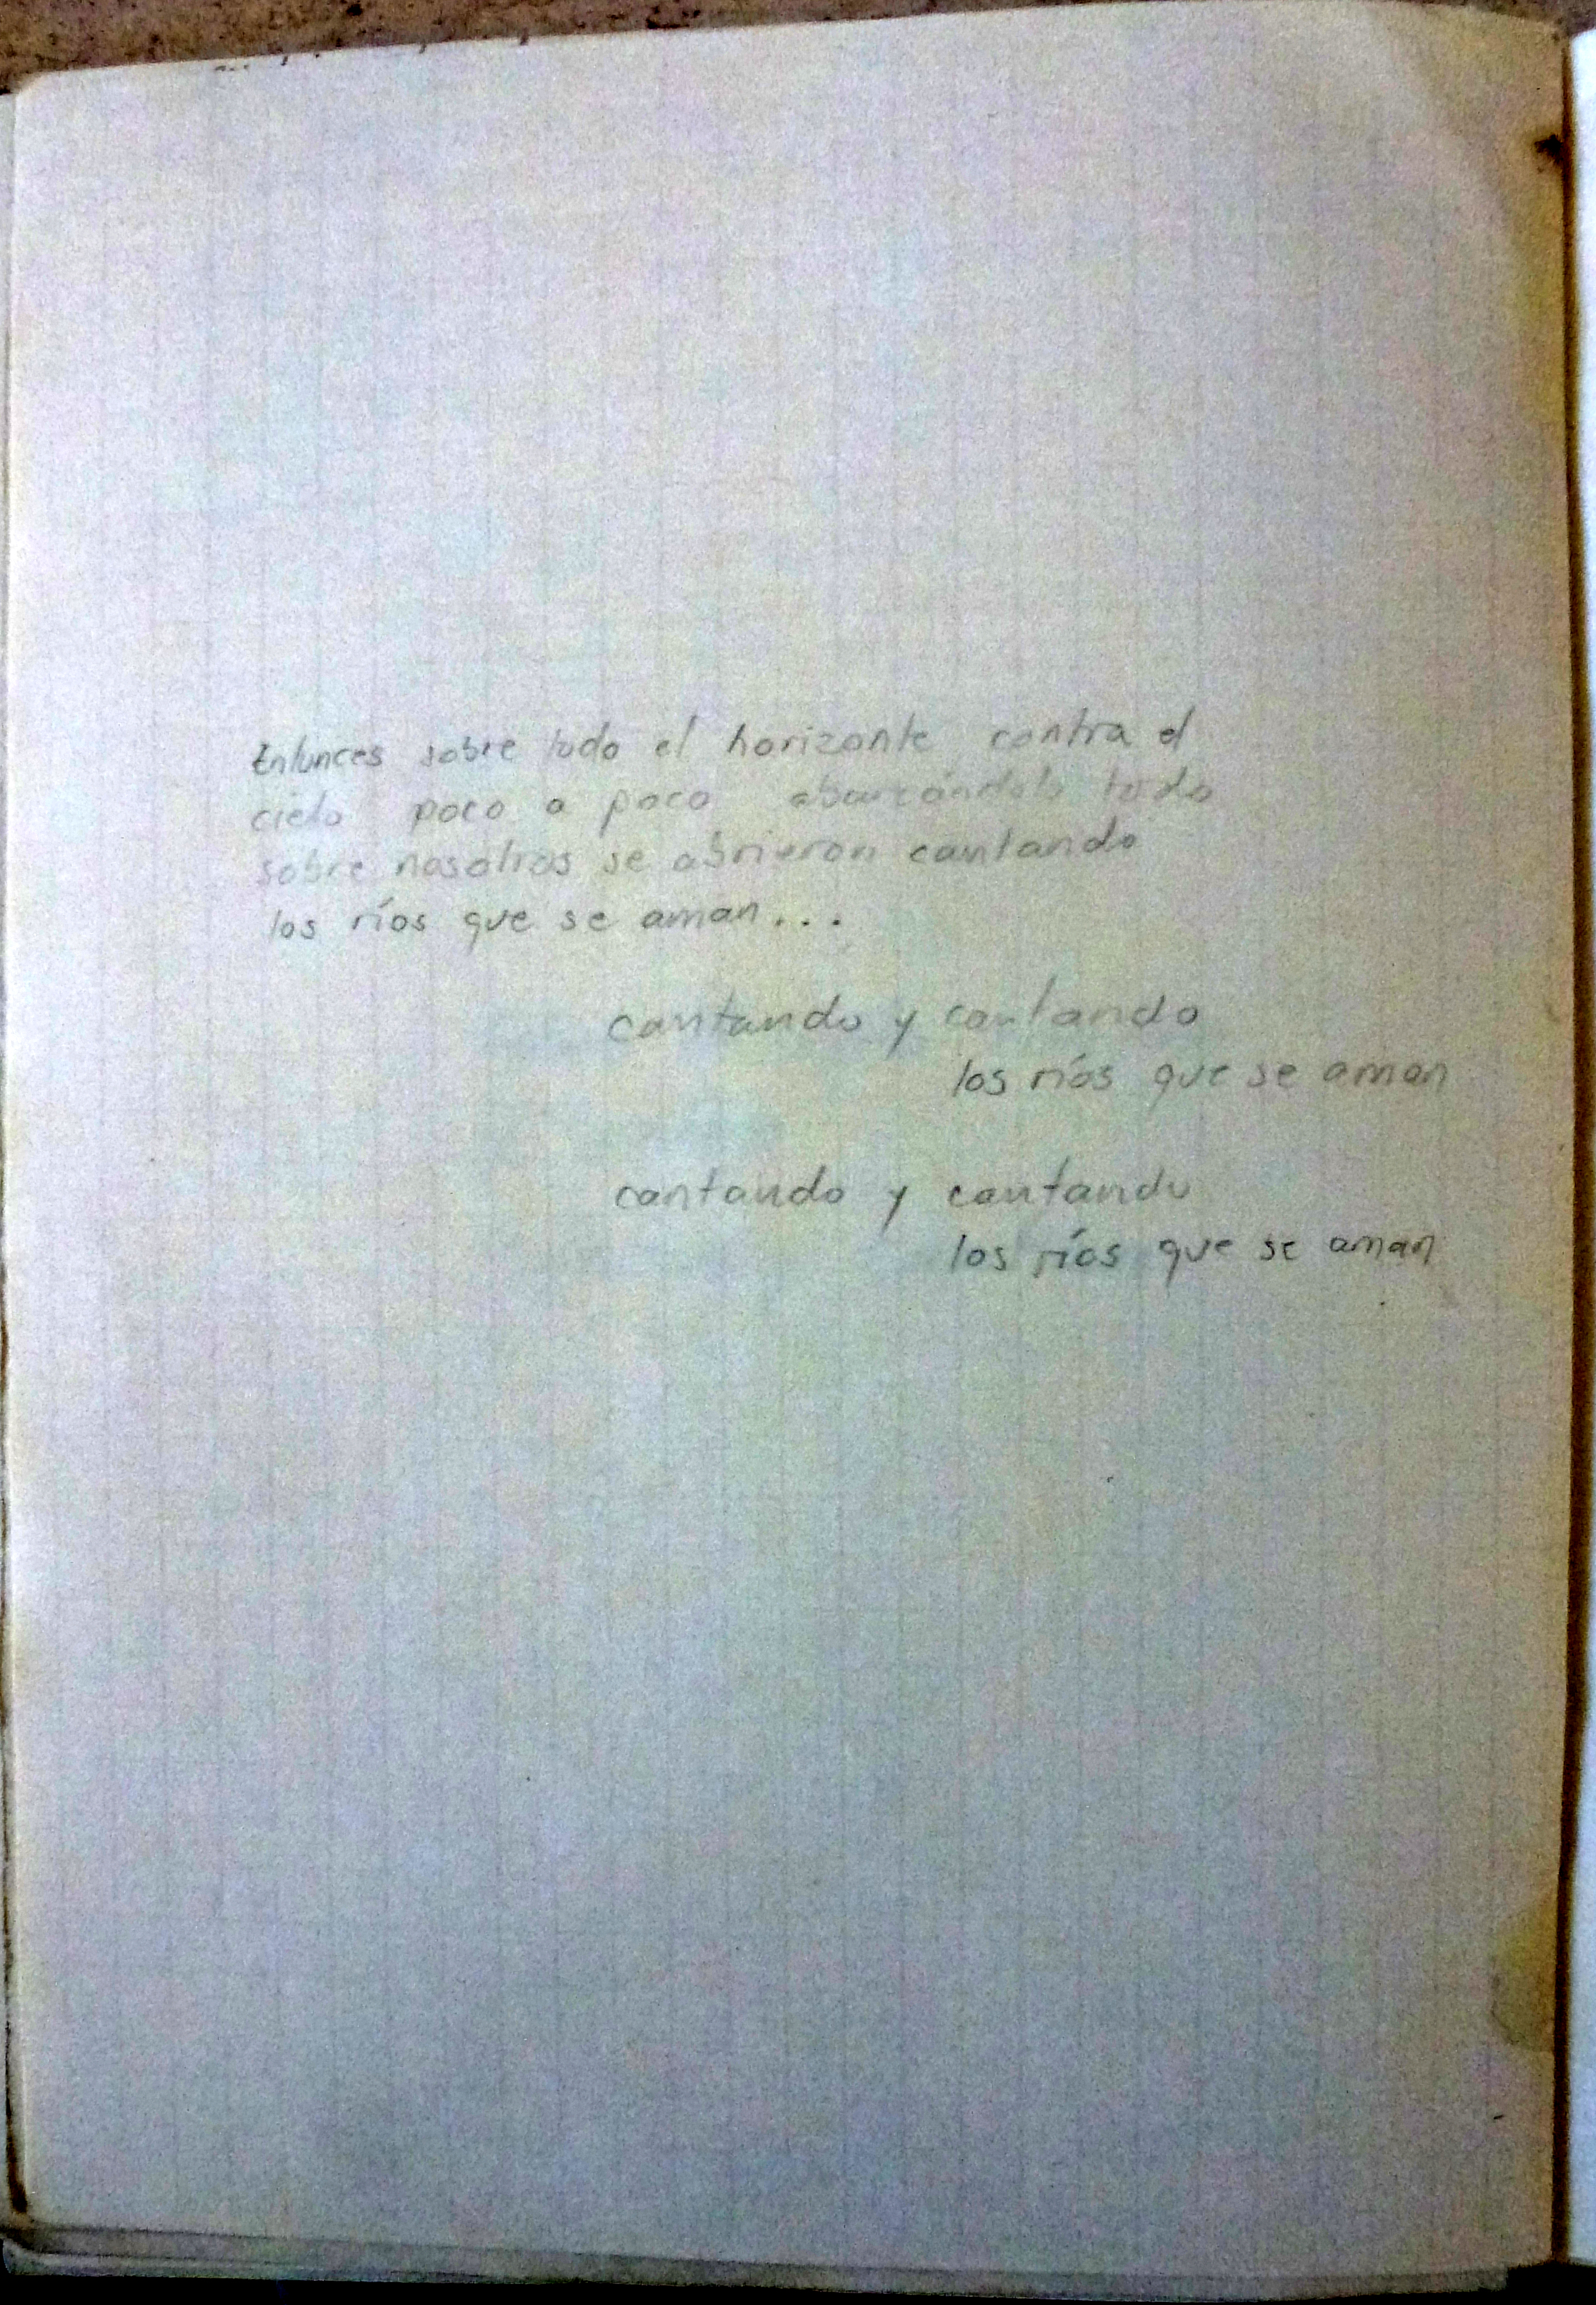 Entonces sobre todo el horizonte contra el
cielo poco a poco abarcándolo todo
sobre nosotros se abrieron cantando
los ríos que se aman...
cantando y cantando
los ríos que se aman
cantando y cantando
los ríos que se aman